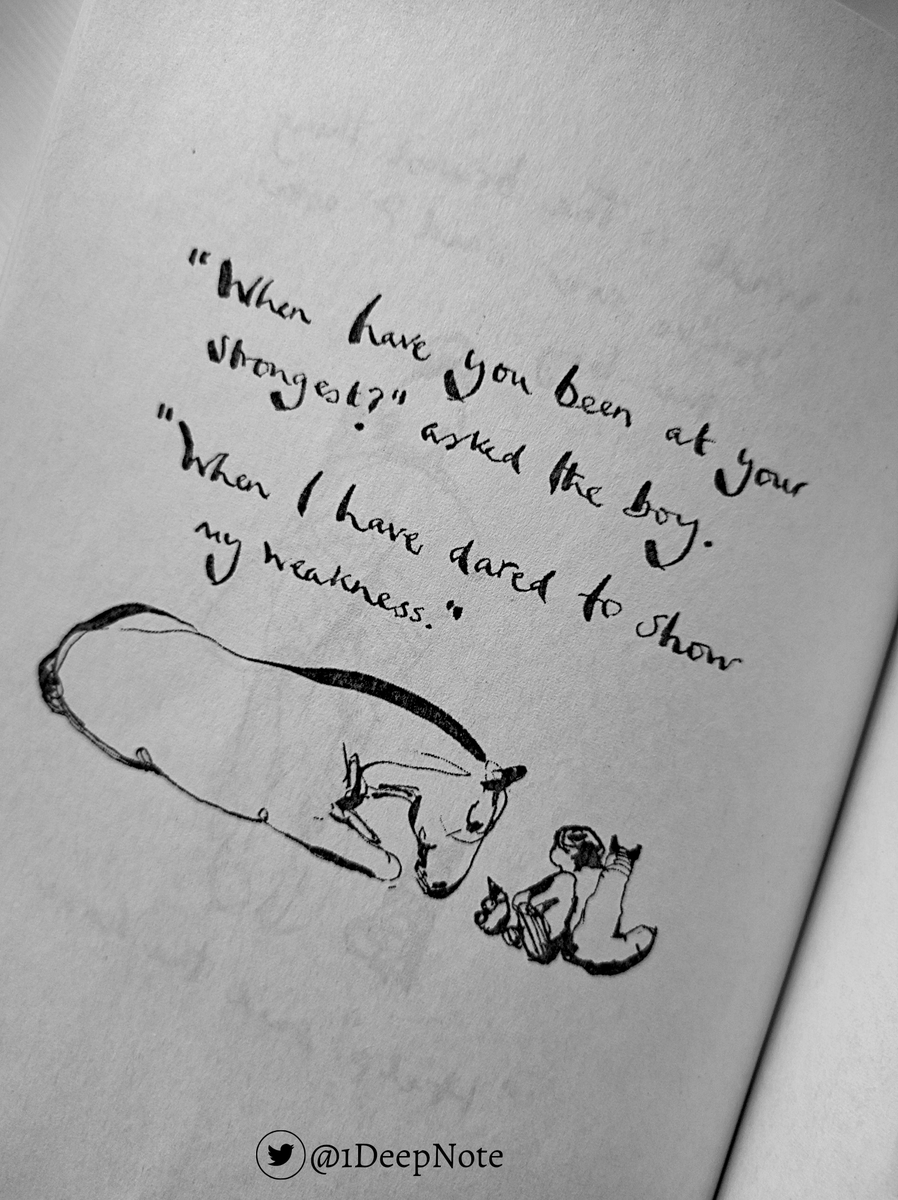 "When have you been at your
strongest?" asked the boy.
"When I have dared to show
my weakness."
@1DeepNote